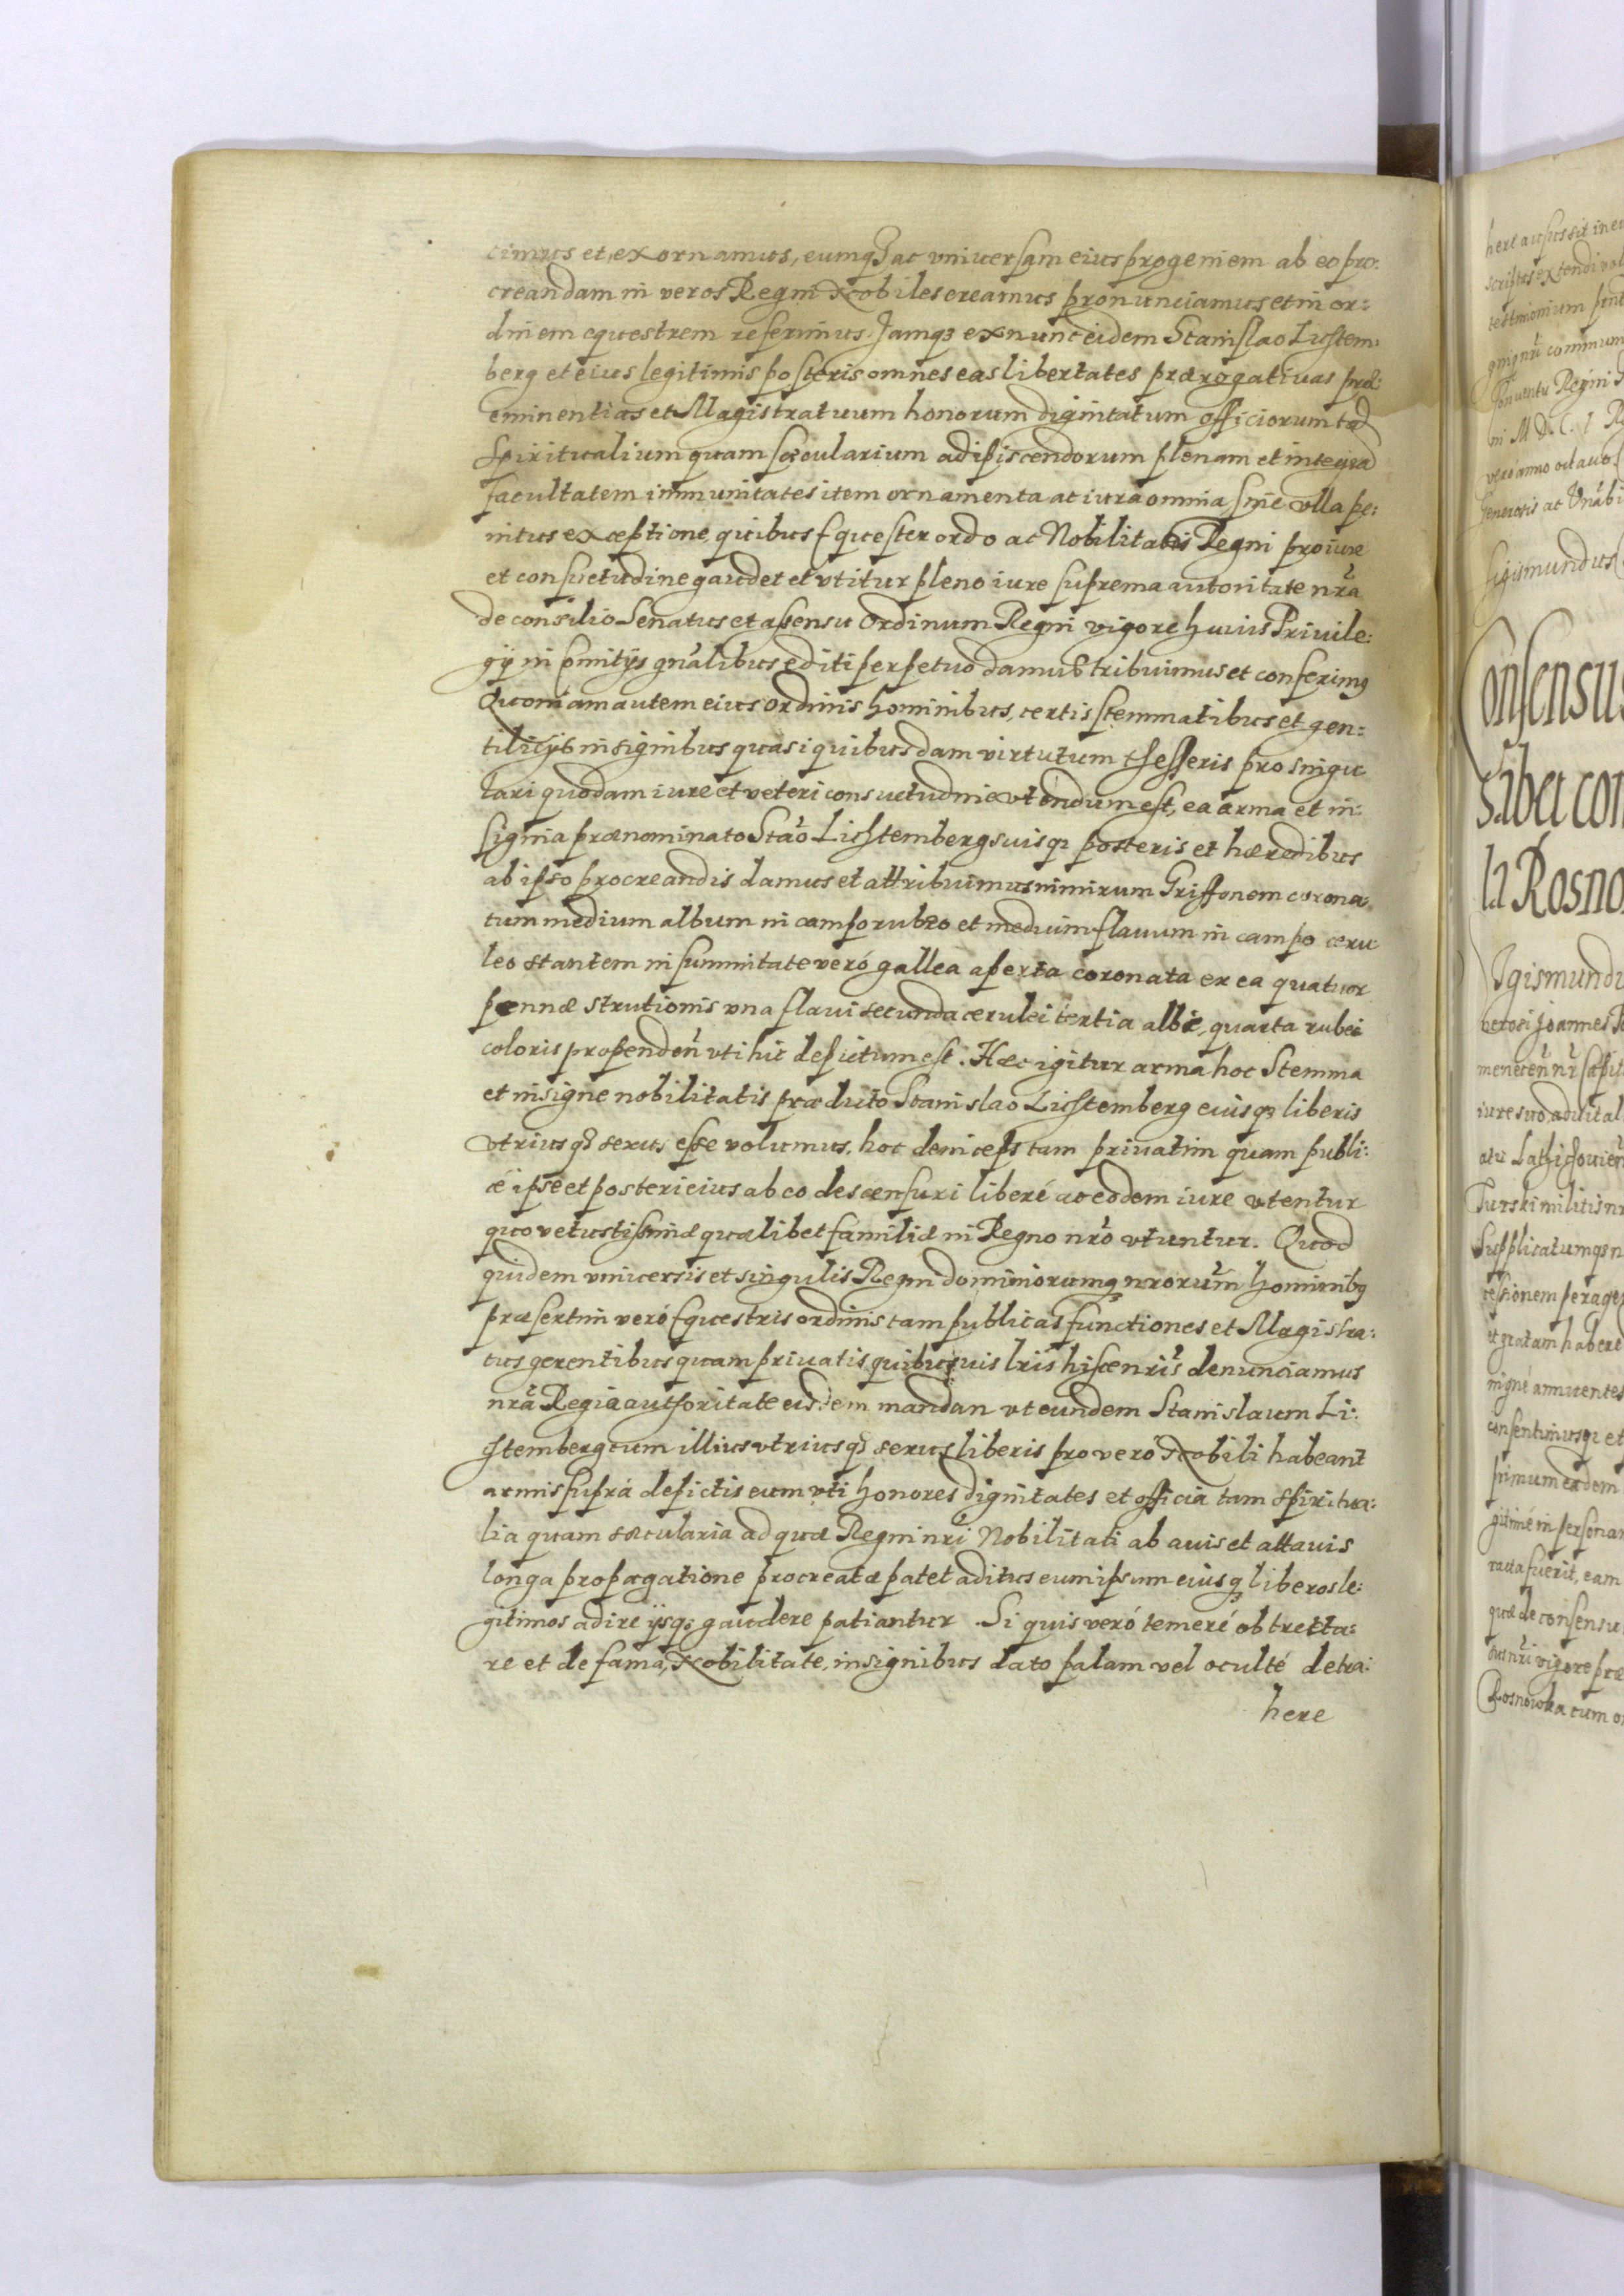 cimus et, exornamus, eumq3 ac vniuersam eius progeniem ab eo pro:
creandam in veros Regni Nobiles creamus pronunciamus et in or:
dinem equestrem referimus. Jamq3 ex nunc eidem Stanislao Lichtem:
berg et eius legitimis posteris omnes eas libertates prærogatiuas præ:
eminentias et Magistratuum honorum dignitatum officiorum tā
Spiritualium quam sæcularium adipiscendorum plenam et integrā
facultatem immunitates item ornamenta ac iura omnia sine vlla pe:
nitus exceptione, quibus Equester ordo ac Nobilitatis Regni pro iure
et consuetudine gaudet et vtitur pleno iure suprema autoritate nrã
de consilio Senatus et assensu Ordinum Regni vigore huius Priuile:
gÿ in Comitÿs gnãlibus editi perpetuo damus tribuimus et conferimq
Quoniam autem eius ordinis hominibus, certis stemmatibus et gen=
tilicÿs insignibus quasi quibusdam virtutum thesseris pro singu
lari quodam iure et veteri consuetudine vtendum est, ea arma et in:
signia prænominato Stão Lichtemberg suisq3 posteris et hæredibus
ab ipso procreandis damus et attribuimus nimirum Griffonem corona:
tum medium album in campo rubro et medium flauum in campo ceru
leo stantem in summitate veró gallea aperta coronata ex ea quatuor
pennæ strutionis vna flaui secunda cerulei tertia albi, quarta rubei
coloris propendeñ vti hic depictum est. Hæc igitur arma hoc Stemma
et insigne nobilitatis prædicto Stanislao Lichtemberg eiusq3 liberis
vtriusq3 sexus esse volumus, hoc deniceps tam priuatim quam publi:
cé ipse et posteri eius ab eo descensuri liberé ac eodem iure vtentur
quo vetustissimæ quælibet familiæ in Regno nrõ vtuntur. Quod
quidem vniuersis et singulis Regni dominiorumq nrorum̃ hominibq
præsertim veró Equestris ordinis tam publicas functiones et Magistra:
tus gerentibus quam priuatis quibusuis lris hisce nris̃ denunciamus
nrã Regia authoritate eisdem mandan vt eundem Stanislaum Li:
chtemberg cum illius vtriusq3 sexus liberis pro veró Nobili habeant
armis suprá depictis eum vti honores dignitates et officia tam spiritua:
lia quam sæcularia ad quæ Regni nrĩ Nobilitati ab auis et attauis
longa propagatione procreatæ patet aditus eum ipsum eiusq liberos le:
gitimos adire ÿsq3 gaudere patiantur. Si quis veró temeré obtretta:
re et de fama, Nobilitate, insignibus dato palam vel oculté detra:
here
here ausus sit in
scriptas extendi
testimonium
gni nrĩ commun
Conuentu Regni
ni M D. C. I
veró anno octauo
Generosis ac
Sigismundus
Consensus
sibel con
la Rosno
Sigismundu
nerosi Joannes
menecen̄ nrĩ
iure suo aduital
atu
Turski militis
Supplicatumq3 n
cessionem perage
et gratam habere
nigné annuentes
consentimusq3 et
primum eadem
gitimé in persona
racta fuerit, eam
quæ de consensu
nrĩ vigore præ
Rosnowka cum